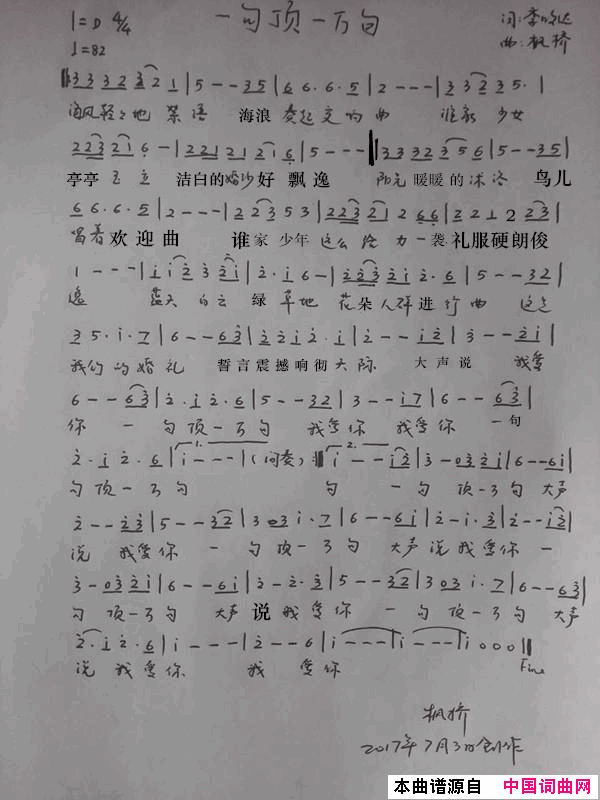 1=D 4/4 一句顶一万句 词:李
♩=82 曲:枫桥
3 3 3 2 3 2 1 | 5 - - 3 5 | 6 6 . 6 5 | 2 - - - | 3 3 2 3 5 . |
海风轻轻地 海浪 奏起交响曲 谁家 少女
2 2 3 2 1 6 - | 2 2 1 2 1 2 1 6 | 5 - - - | 3 3 3 2 3 5 6 | 5 - - 3 5 |
亭亭玉立 洁白的婚纱好飘逸 阳光暖暖的沐浴 鸟儿
6 6 . 6 5 | 2 - - - | 2 2 3 5 3 | 2 2 3 2 1 2 6 6 | 2 2 1 2 2 2 3 |
唱着欢迎曲 谁家少年这么 力 一袭礼服硬朗俊
1 - - - | i i 2 3 2 i | 2 . i 6 - | 2 2 3 2 i 2 . 6 | 5 - - 3 2 |
逸 蓝天白云绿草地 花朵人群进行曲 这是
3 5 . i . 7 | 6 - - 6 3 | 2 2 i 2 . i | 2 - - i 2 | 3 - - 2 i |
我们的婚礼 誓言震撼响彻大际 大声说 我爱
6 - - 6 3 | 2 . i 2 . 6 | 5 - - 3 2 | 3 - - i 7 | 6 - - 6 3 |
你 一句顶一万句 我爱你 我爱你 一句
2 . i 2 . 6 | 1. i - - - | (间奏) :| 2. i - - i 2 | 3 - 0 3 2 i | 6 - - 6 i |
句顶一万句 句 一句顶一万句 大声
2 - - 2 3 | 5 - - 3 2 | 3 0 3 i . 7 | 6 - - 6 i | 2 - i . 3 | 2 - - i 2 |
说 我爱你 一句顶一万句 大声说我爱你 一
3 - 0 3 2 i | 6 - - 6 i | 2 - 2 . 3 | 5 - - 3 2 | 3 0 3 i . 7 | 6 - - 6 3 |
句顶一万句 大声说我爱你 一句顶一万句 大声
2 . i 2 . 6 | i - - - | 2 - - 6 | i - - - | i - - - | i 0 0 0 ||
说我爱你 我 爱你 Fine
枫桥
2017年7月3日创作
本曲谱源自 中国词曲网